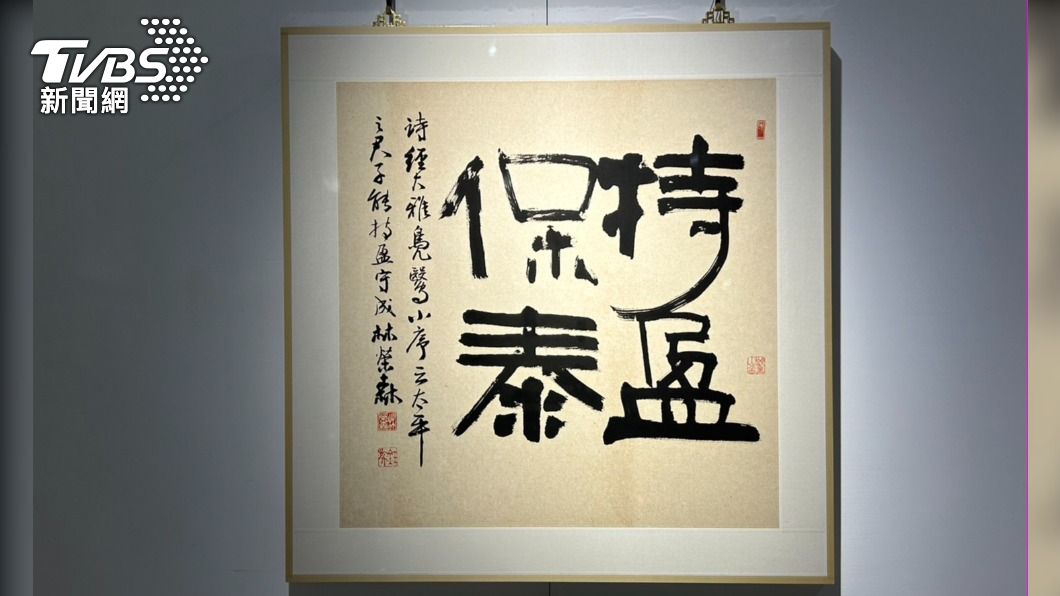 TVBS
新聞網
持盈
保泰
詩經大雅鳧鷖小序云太平
之君子能持盈守成林榮森